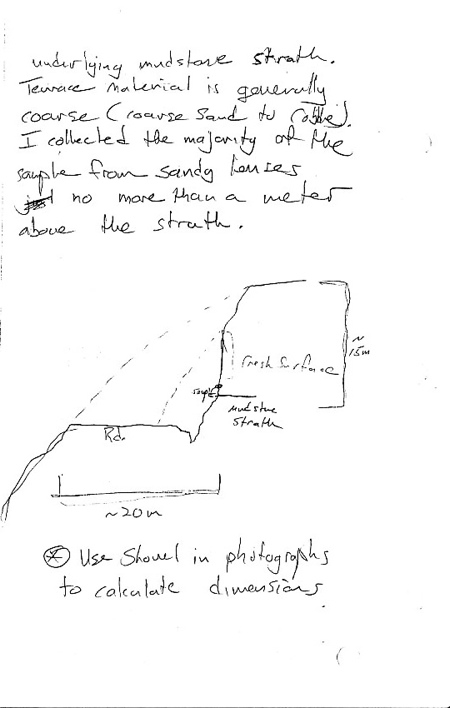 underlying mudstone strath.
Terrace Material is generally
coarse (coarse sand to cobble).
I collected the majority of the
sample from sandy lenses
no more than a meter
above the strath.
~
15m
fresh surface
sample
mudstone
strath
Rd.
~20m
* Use Shovel in photographs
to calculate dimensions